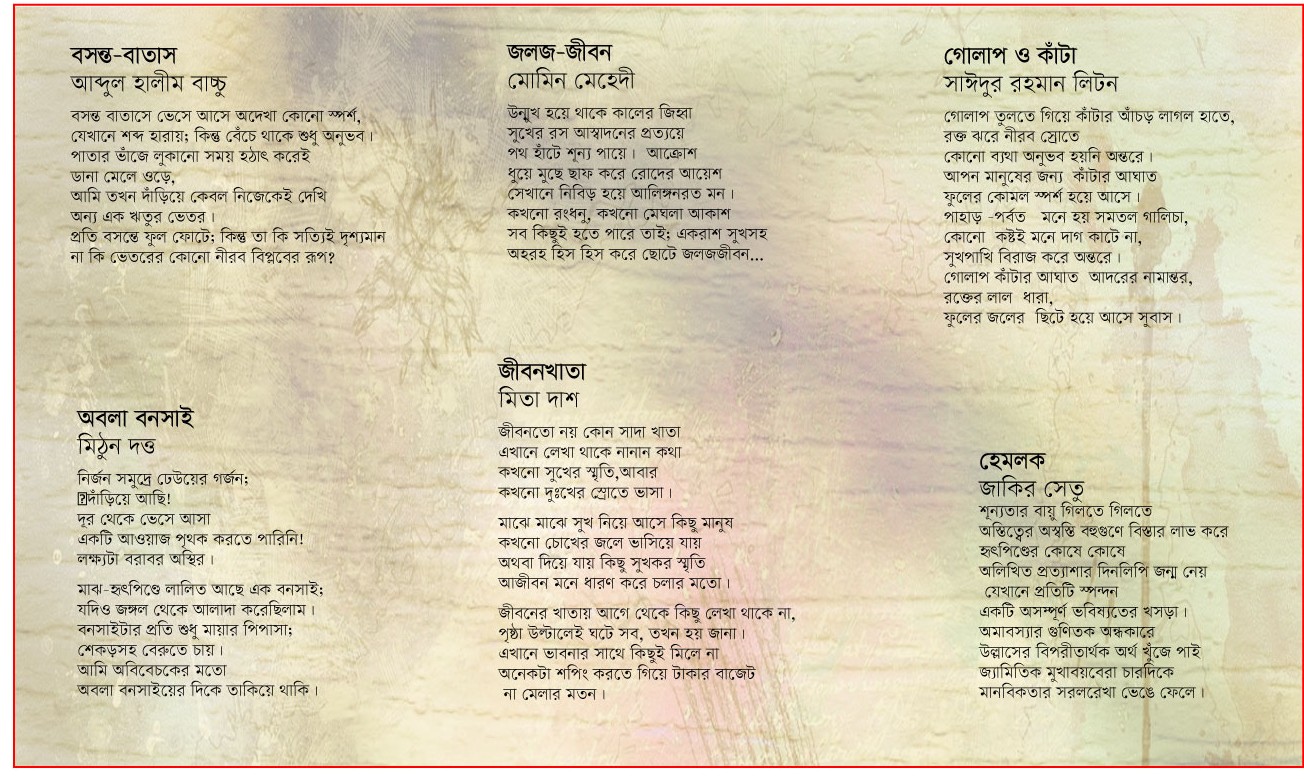 বসন্ত-বাতাস
আব্দুল হালীম বাচ্চু
বসন্ত বাতাসে ভেসে আসে অদেখা কোনো স্পর্শ,
যেখানে শব্দ হারায়; কিন্তু বেঁচে থাকে শুধু অনুভব।
পাতার ভাঁজে লুকানো সময় হঠাৎ করেই
ডানা মেলে ওড়ে,
আমি তখন দাঁড়িয়ে কেবল নিজেকেই দেখি
অন্য এক ঋতুর ভেতর।
প্রতি বসন্তে ফুল ফোটে; কিন্তু তা কি সত্যিই দৃশ্যমান
না কি ভেতরের কোনো নীরব বিপ্লবের রূপ?
জলজ-জীবন
মোমিন মেহেদী
উন্মুখ হয়ে থাকে কালের জিহ্বা
সুখের রস আস্বাদনের প্রত্যয়ে
পথ হাঁটে শূন্য পায়ে। আক্রোশ
ধুয়ে মুছে ছাফ করে রোদের আয়েশ
সেখানে নিবিড় হয়ে আলিঙ্গনরত মন।
কখনো রংধনু, কখনো মেঘলা আকাশ
সব কিছুই হতে পারে তাই; একরাশ সুখসহ
অহরহ হিস হিস করে ছোটে জলজজীবন...
গোলাপ ও কাঁটা
সাঈদুর রহমান লিটন
গোলাপ তুলতে গিয়ে কাঁটার আঁচড় লাগল হাতে,
রক্ত ঝরে নীরব স্রোতে
কোনো ব্যথা অনুভব হয়নি অন্তরে।
আপন মানুষের জন্য কাঁটার আঘাত
ফুলের কোমল স্পর্শ হয়ে আসে।
পাহাড় -পর্বত মনে হয় সমতল গালিচা,
কোনো কষ্টই মনে দাগ কাটে না,
সুখপাখি বিরাজ করে অন্তরে।
গোলাপ কাঁটার আঘাত আদরের নামান্তর,
রক্তের লাল ধারা,
ফুলের জলের ছিটে হয়ে আসে সুবাস।
অবলা বনসাই
মিঠুন দত্ত
নির্জন সমুদ্রে ঢেউয়ের গর্জন;
দাঁড়িয়ে আছি!
দূর থেকে ভেসে আসা
একটি আওয়াজ পৃথক করতে পারিনি!
লক্ষ্যটা বরাবর অস্থির।
মাঝ-হৃৎপিণ্ডে লালিত আছে এক বনসাই;
যদিও জঙ্গল থেকে আলাদা করেছিলাম।
বনসাইটার প্রতি শুধু মায়ার পিপাসা;
শেকড়সহ বেরুতে চায়।
আমি অবিবেচকের মতো
অবলা বনসাইয়ের দিকে তাকিয়ে থাকি।
জীবনখাতা
মিতা দাশ
জীবনতো নয় কোন সাদা খাতা
এখানে লেখা থাকে নানান কথা
কখনো সুখের স্মৃতি,আবার
কখনো দুঃখের স্রোতে ভাসা।
মাঝে মাঝে সুখ নিয়ে আসে কিছু মানুষ
কখনো চোখের জলে ভাসিয়ে যায়
অথবা দিয়ে যায় কিছু সুখকর স্মৃতি
আজীবন মনে ধারণ করে চলার মতো।
জীবনের খাতায় আগে থেকে কিছু লেখা থাকে না,
পৃষ্ঠা উল্টালেই ঘটে সব, তখন হয় জানা।
এখানে ভাবনার সাথে কিছুই মিলে না
অনেকটা শপিং করতে গিয়ে টাকার বাজেট
না মেলার মতন।
হেমলক
জাকির সেতু
শূন্যতার বায়ু গিলতে গিলতে
অস্তিত্বের অস্বস্তি বহুগুণে বিস্তার লাভ করে
হৃৎপিণ্ডের কোষে কোষে
অলিখিত প্রত্যাশার দিনলিপি জন্ম নেয়
যেখানে প্রতিটি স্পন্দন
একটি অসম্পূর্ণ ভবিষ্যতের খসড়া।
অমাবস্যার গুণিতক অন্ধকারে
উল্লাসের বিপরীতার্থক অর্থ খুঁজে পাই
জ্যামিতিক মুখাবয়বেরা চারদিকে
মানবিকতার সরলরেখা ভেঙে ফেলে।